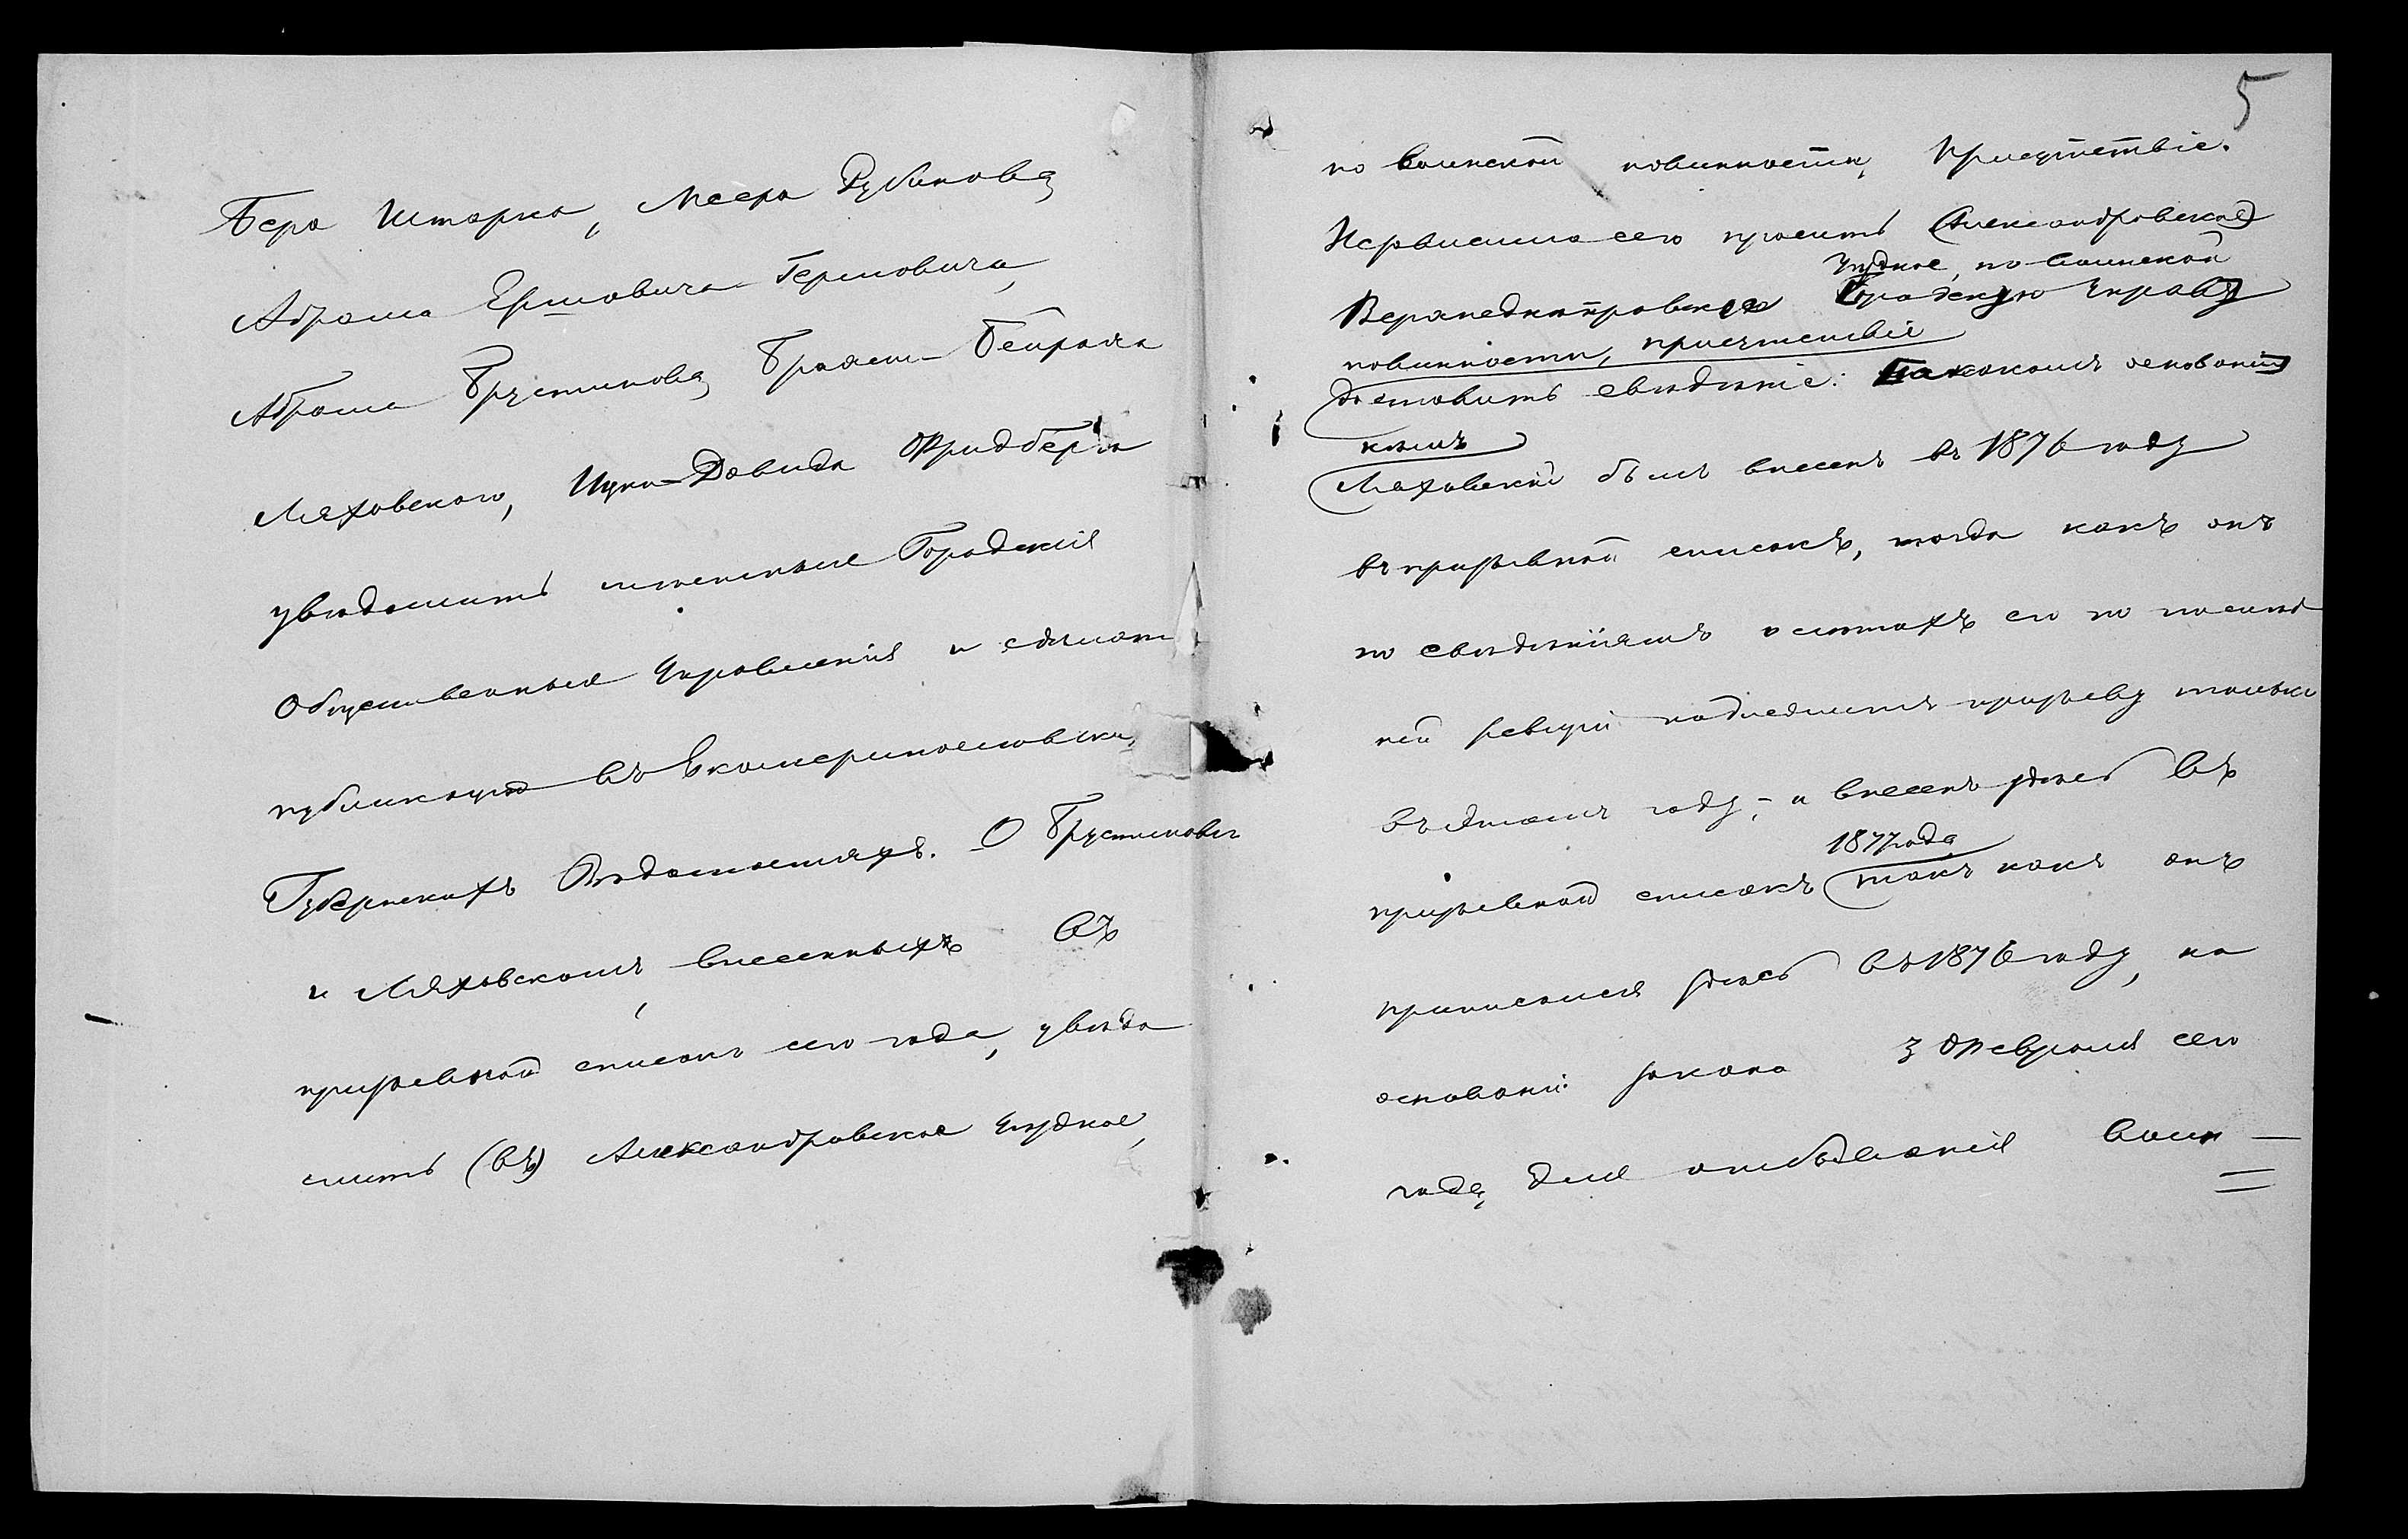 Бера Шторха, Меера Рубинова,
Абрама Ершовича Гершовича,
Абрама Брустинова, Бейраха
Ляховскаго, Ицка-Довида Фридберга
увѣдомить мѣстныя Городскія
Общественныя Управленія и сдѣлать
публикацію въ Екатеринославски
Губернскихъ Вѣдомостяхъ. О Брустиновѣ
и Ляховскомъ, внесенныхъ въ
призывной списокъ сего года, увѣдо
мить (въ) Александровское Уѣздное,
5
по воинской повинности, Присутствіе.
просить (Александровское)
Уѣздное, по воинской
Верхнеднѣпровскую Городскую Управу
повинности, присутствіе
доставить свѣдѣніе: на какомъ основаніи
Ляховскій былъ внесенъ въ 1876 году
въ призывной списокъ, тогда какъ онъ
по свѣдѣніямъ о лѣтахъ его по послѣд
ней ревизіи подлежитъ призыву только
въ этомъ году, - и внесенъ здѣсь въ
1877 года
призывной списокъ такъ какъ онъ
приписался здѣсь въ 1876 году, на
основаніи закона 3 Февраля сего
года, для отбыванія воин